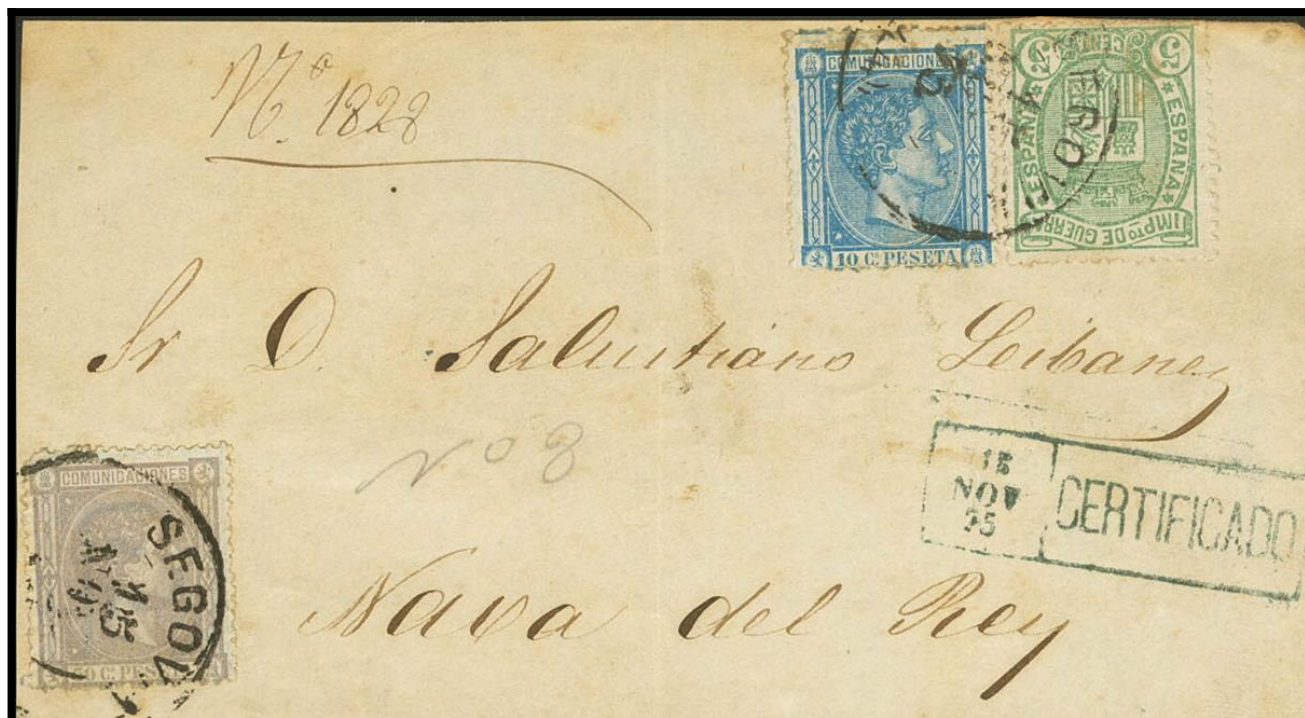 Nº 1828
COMUNICACIONES
10 C. PESETA
5 CENT 5
ESPAÑA
ESPAÑA
IMPTO DE GUERRA
SEGOV
Sr D. Salustiano Leibanez
Nº 8
15
NOV
75
CERTIFICADO
COMUNICACIONES
SEGOV
15
C. PESETA
Nava del Rey